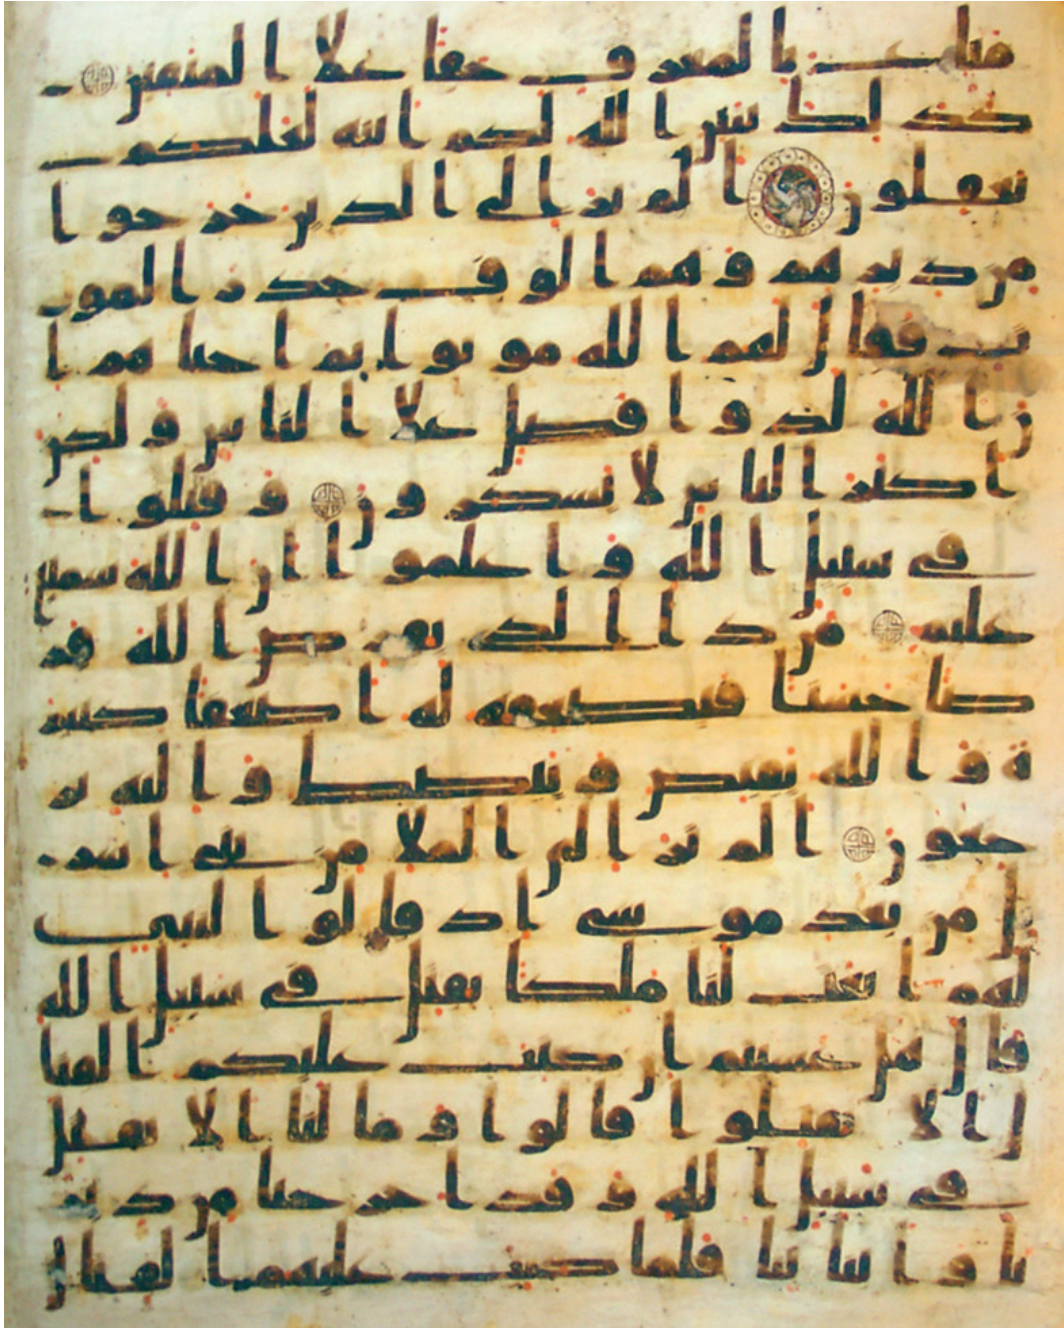 متاع بالمعروف حقا علا المتقين
كذلك يبين الله لكم ايته لعلكم
تعقلون الم تر الى الذين خرجوا
من ديرهم وهم الوف حذر المو
ت فقال لهم الله موتوا ثم احياهم ا
ن الله لذو فضل علا الناس ولكن
اكثر الناس لا يشكرون وقتلوا
في سبيل الله واعلموا ان الله سميع
عليم من ذا الذي يقرض الله قر
ضا حسنا فيضعفه له اضعفا كثير
ة والله يقبض ويبصط واليه تر
جعون الم تر الى الملا من بني اسر
يل من بعد موسى اذ قالوا لنبي
لهم ابعث لنا ملكا نقتل في سبيل الله
قال هل عسيتم ان كتب عليكم القتا
ل الا تقتلوا قالوا وما لنا الا نقتل
في سبيل الله وقد اخرجنا من دير
نا وابنائنا فلما كتب عليهم القتال